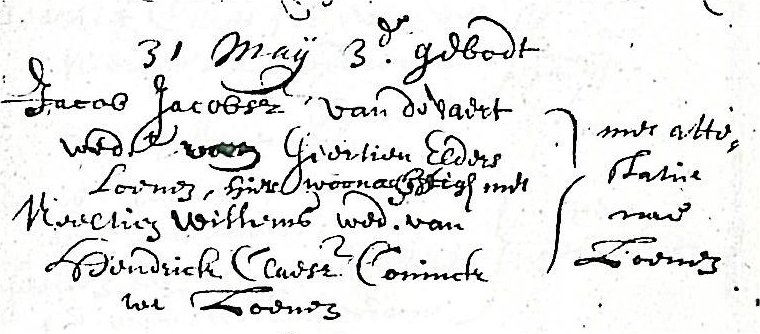 31 Maÿ 3de. gebodt
Jacob Jacobsz van de Vaert
wedr. van Giertien Elders
Loenen, hier woonachtigh met
Neeltien Willems wed. van
Hendrick Claesz Coninck
te Loenen
met atte,
statie
nae
Loenen